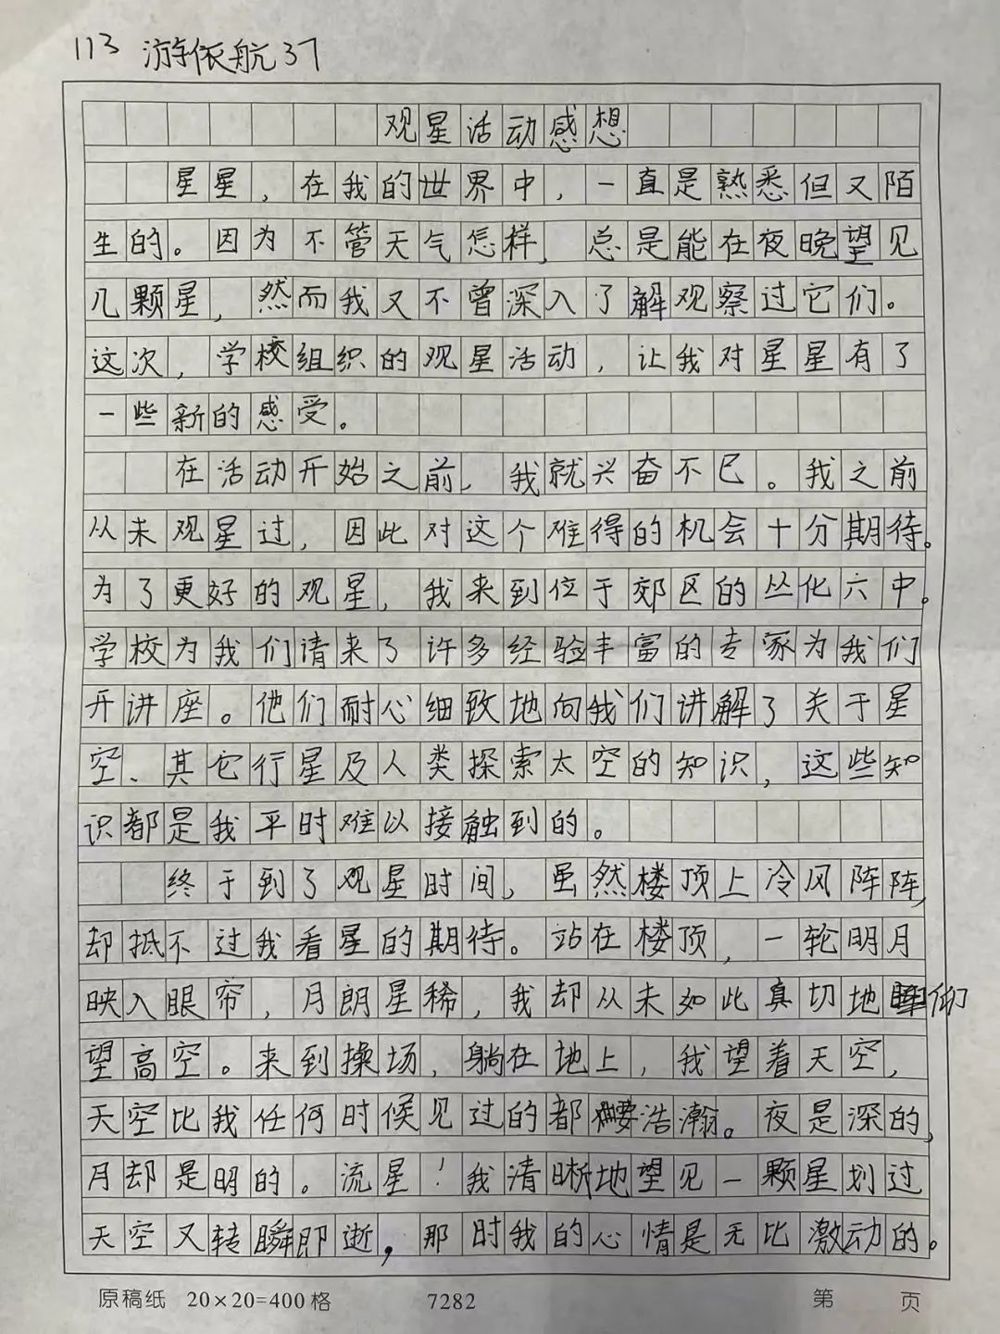 113 游依航37
观星活动感想
星星，在我的世界中，一直是熟悉但又陌
生的。因为不管天气怎样，总是能在夜晚望见
几颗星，然而我又不曾深入了解观察过它们。
这次，学校组织的观星活动，让我对星星有了
一些新的感受。
在活动开始之前，我就兴奋不已。我之前
从未观星过，因此对这个难得的机会十分期待。
为了更好的观星，我来到位于郊区的丛化六中。
学校为我们请来了许多经验丰富的专家为我们
开讲座。他们耐心细致地向我们讲解了关于星
空、其它行星及人类探索太空的知识，这些知
识都是我平时难以接触到的。
终于到了观星时间，虽然楼顶上冷风阵阵，
却抵不过我看星的期待。站在楼顶，一轮明月
映入眼帘，月朗星稀，我却从未如此真切地仰
望高空。来到操场，躺在地上，我望着天空，
天空比我任何时候见过的都要浩瀚。夜是深的，
月却是明的。流星！我清晰地望见一颗星划过
天空又转瞬即逝，那时我的心情是无比激动的。
原稿纸 20×20=400格 7282 第 页